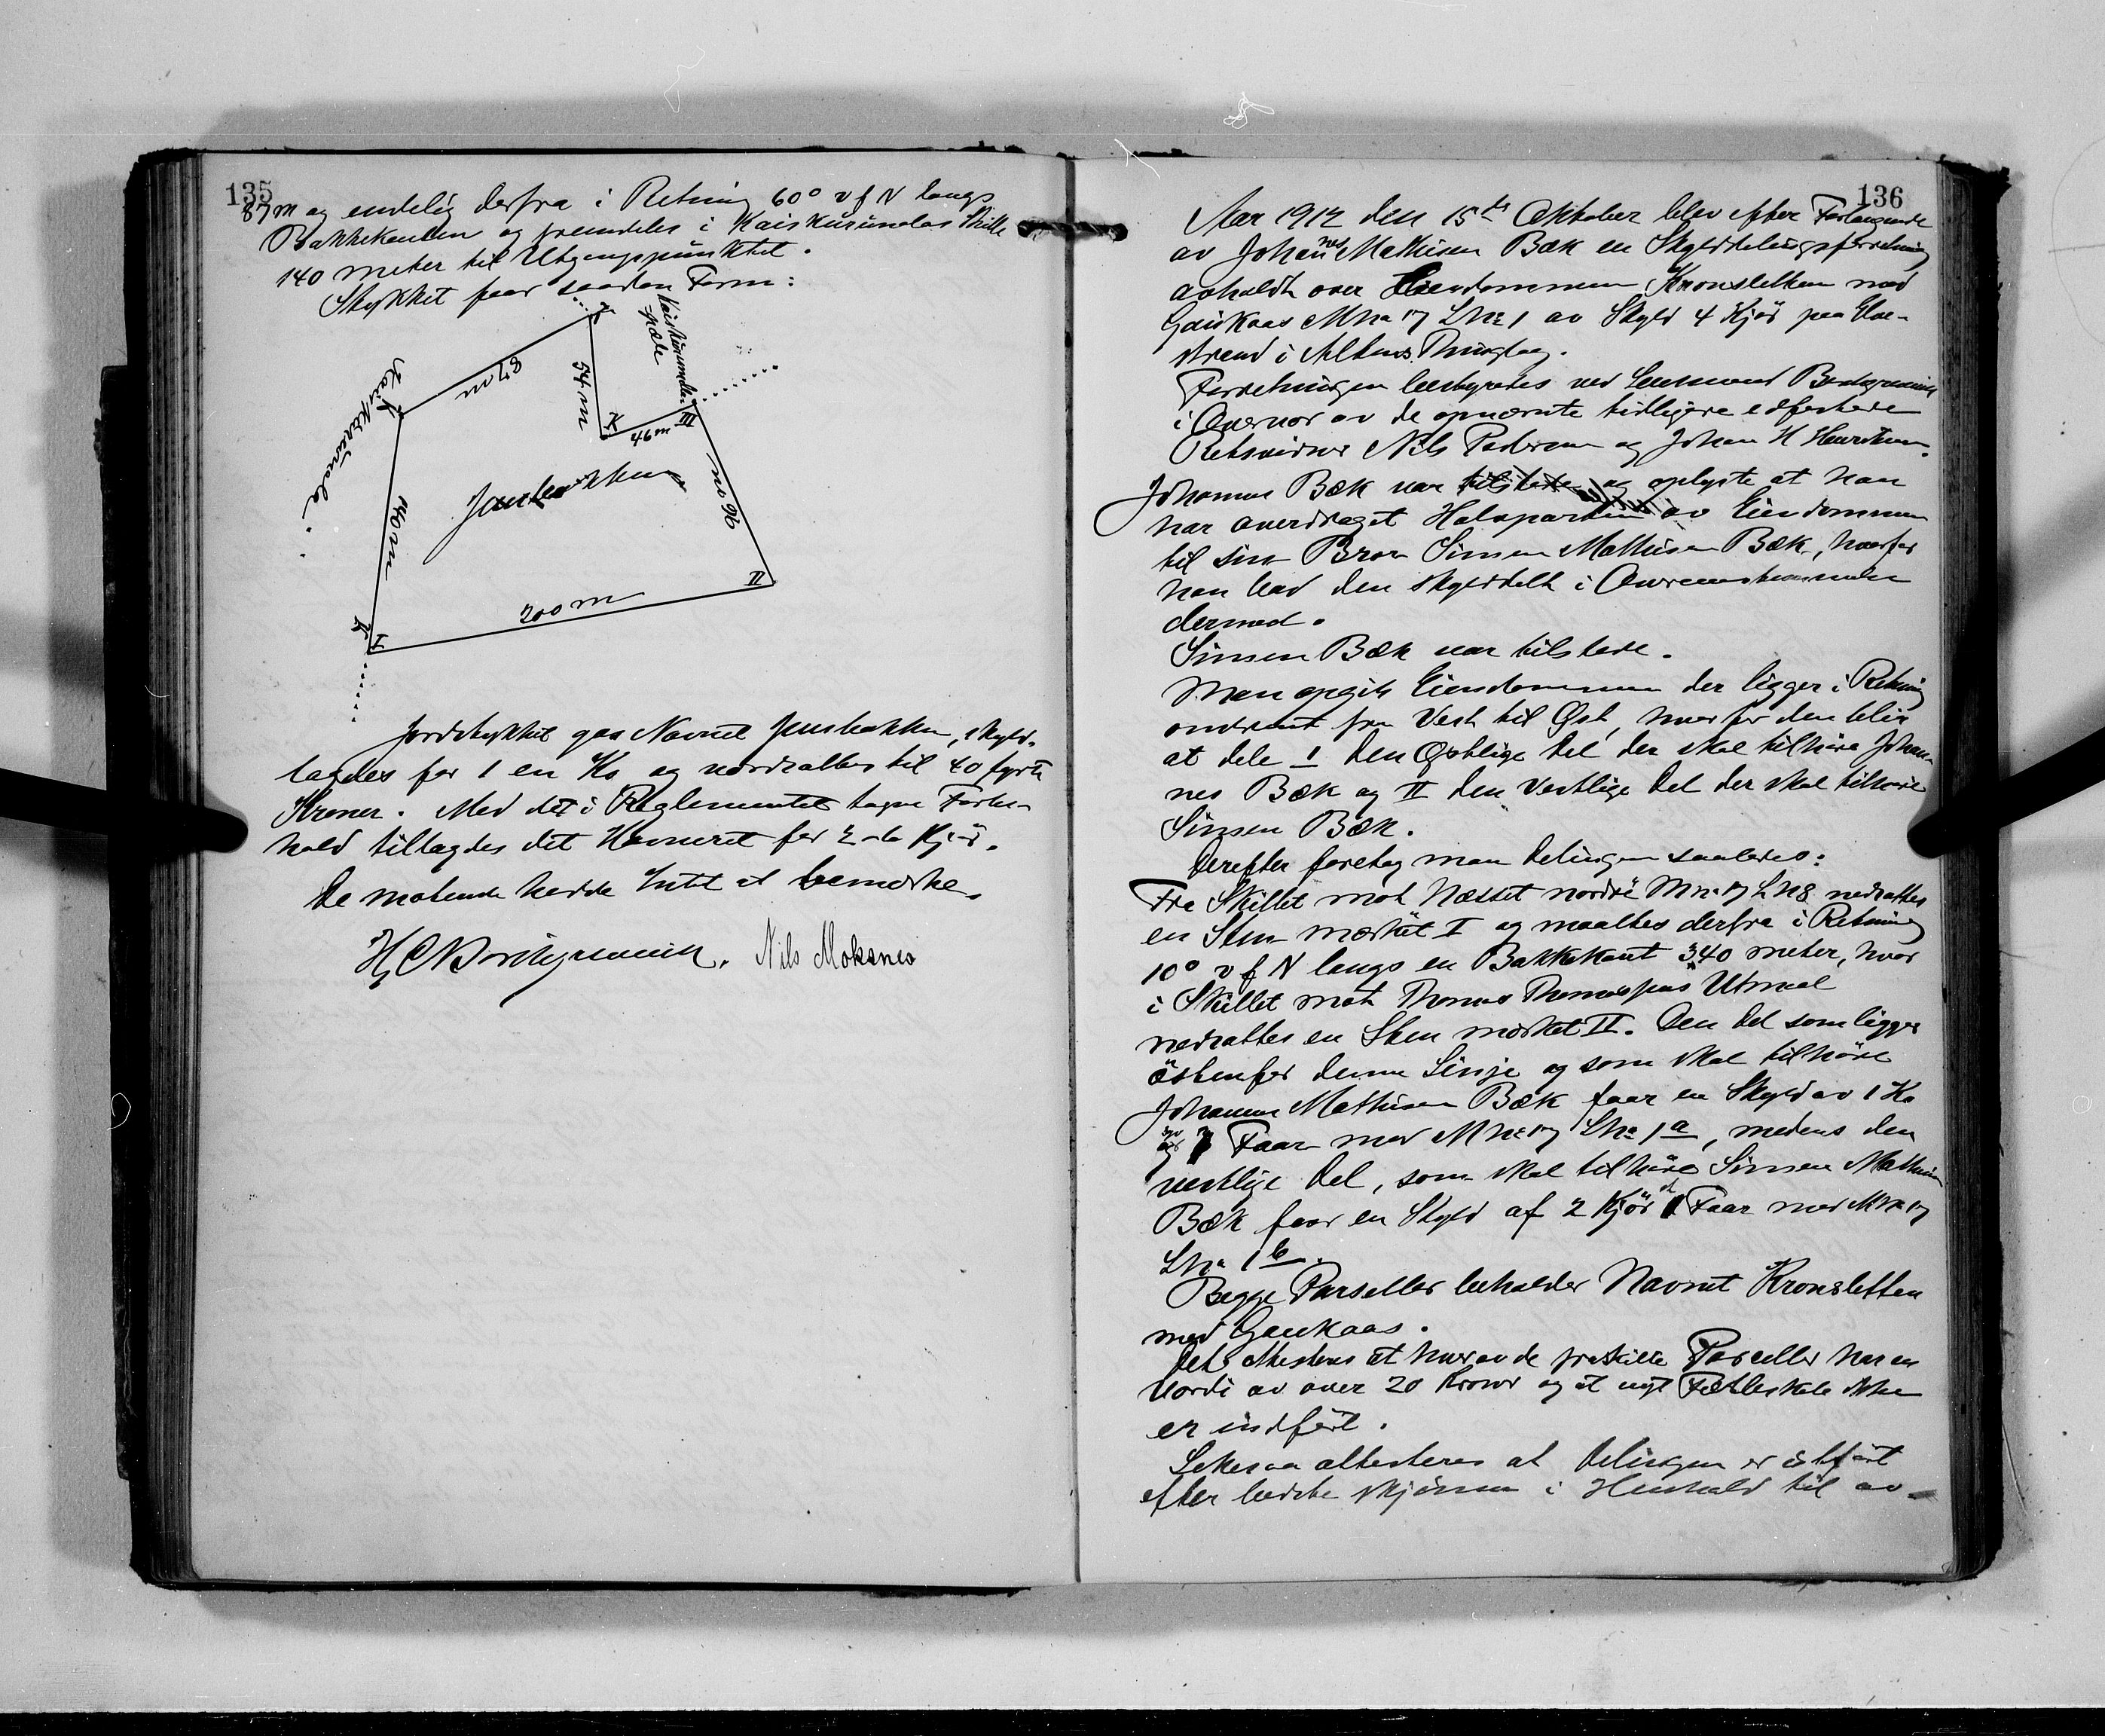 135
87 m og endelig derfra i Retning 60° v f N langs
Bakkekanten og fremdeles i Kaiskurunolas Skille
140 meter til Utgangspunktet.
Stykket faar saadan Form:
87 m
54 m
46 m
III
Kaiskurunola
140 m
Jensbakken
96 m
II
200 m
I
Jordstykket gaa Navnet Jensbakken, skyld-
lagdes for 1 en Ko og værdsattes til 40 fyrti
Kroner. Med det i Reglementet tagne Forbe-
hold tillagdes det Havneret for 2 to Kjør.
De møtende hadde Intet at bemærke.
Nils Moksnes
136
Aar 1912 den 15de Oktober blev efter Forlangende
av Johannes Mathisen Bæk en Skylddelingsforretning
avholdt over Eiendommen Kronsletten med
Gauskaas M No 17 L No 1 av Skyld 4 Kjør paa
strand i Altens Thinglag.
Forretningen bestyredes ved Lensmand
i av de opnævnte tidligere edfæstede
Retsvidner Nils Pedersen og Johan H Henriksen.
Johannes Bæk var tilstede og oplyste at han
har overdraget Halvparten av Eiendommen
til sin Bror Simen Mathisen Bæk, hvorfor
han bad den skylddelt i Overensstemmelse
dermed.
Simen Bæk var tilstede.
Man opgik Eiendommen der ligger i Retning
omtrent fra Vest til Øst, hvorfor den blir
at dele I den Østlige Del der skal tilhøre Johan-
nes Bæk og II den Vestlige Del der skal tilhøre
Simen Bæk.
Derefter foretog man Delingen saaledes:
Fra Skillet mot Næsset nordre M No 17 L N 8 nedsattes
en Sten mærket I og maaltes derfra i Retning
10° v f N langs en Bakkekant 340 meter, hvor
i Skillet mot Thomas Thomassens Utmaal
nedsattes en Sten mærket II. Den Del som ligger
østenfor denne Linje og som skal tilhøre
Johannes Mathisen Bæk faar en Skyld av 1 Ko
og 7 Faar med M No 17 L No 1 a, medens den
vestlige Del, som skal tilhøre Simen Mathisen
Bæk faar en Skyld af 2 Kjør 1 Faar med M No 17
L No 1 b.
Begge Parseller beholder Navnet Kronsletten
med Gauskaas.
Det attesteres at hver av de fraskilte Parceller har en
Værdi av over 20 Kroner og at nyt ikke
er indført.
Likesaa attesteres at Delingen er utført
efter bedste skjønn i Henhold til av-